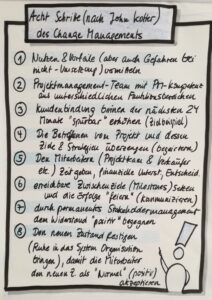 Acht Schritte (nach John Kotter)
des Change Managements
1 Nutzen & Vorteile (aber auch Gefahren bei
nicht-Umsetzung) vermitteln
2 Projektmanagement-Team mit PM-Kompetenz
aus unterschiedlichen Funktionsbereichen
3 Kundenbindung binnen der nächsten 24
Monate "spürbar" erhöhen (Zielbeispiel)
4 Die Betroffenen von Projekt und dessen
Ziele & Strategien überzeugen (begeistern)
5 Den Mitarbeitern (Projektteam & Verkäufer
etc.) Zeit geben, finanzielle Unterst., Entscheid.
6 erreichbare Zwischenziele (Milestones) setzen
und die Erfolge "feiern" (kommunizieren)
7 durch permanentes Stakeholdermanagement
dem Widerstand "positiv" begegnen
8 Den neuen Zustand festigen
(Ruhe in das System Organisation
bringen), damit die Mitarbeiter
den neuen Z. als "Normal" (positiv)
akzeptieren